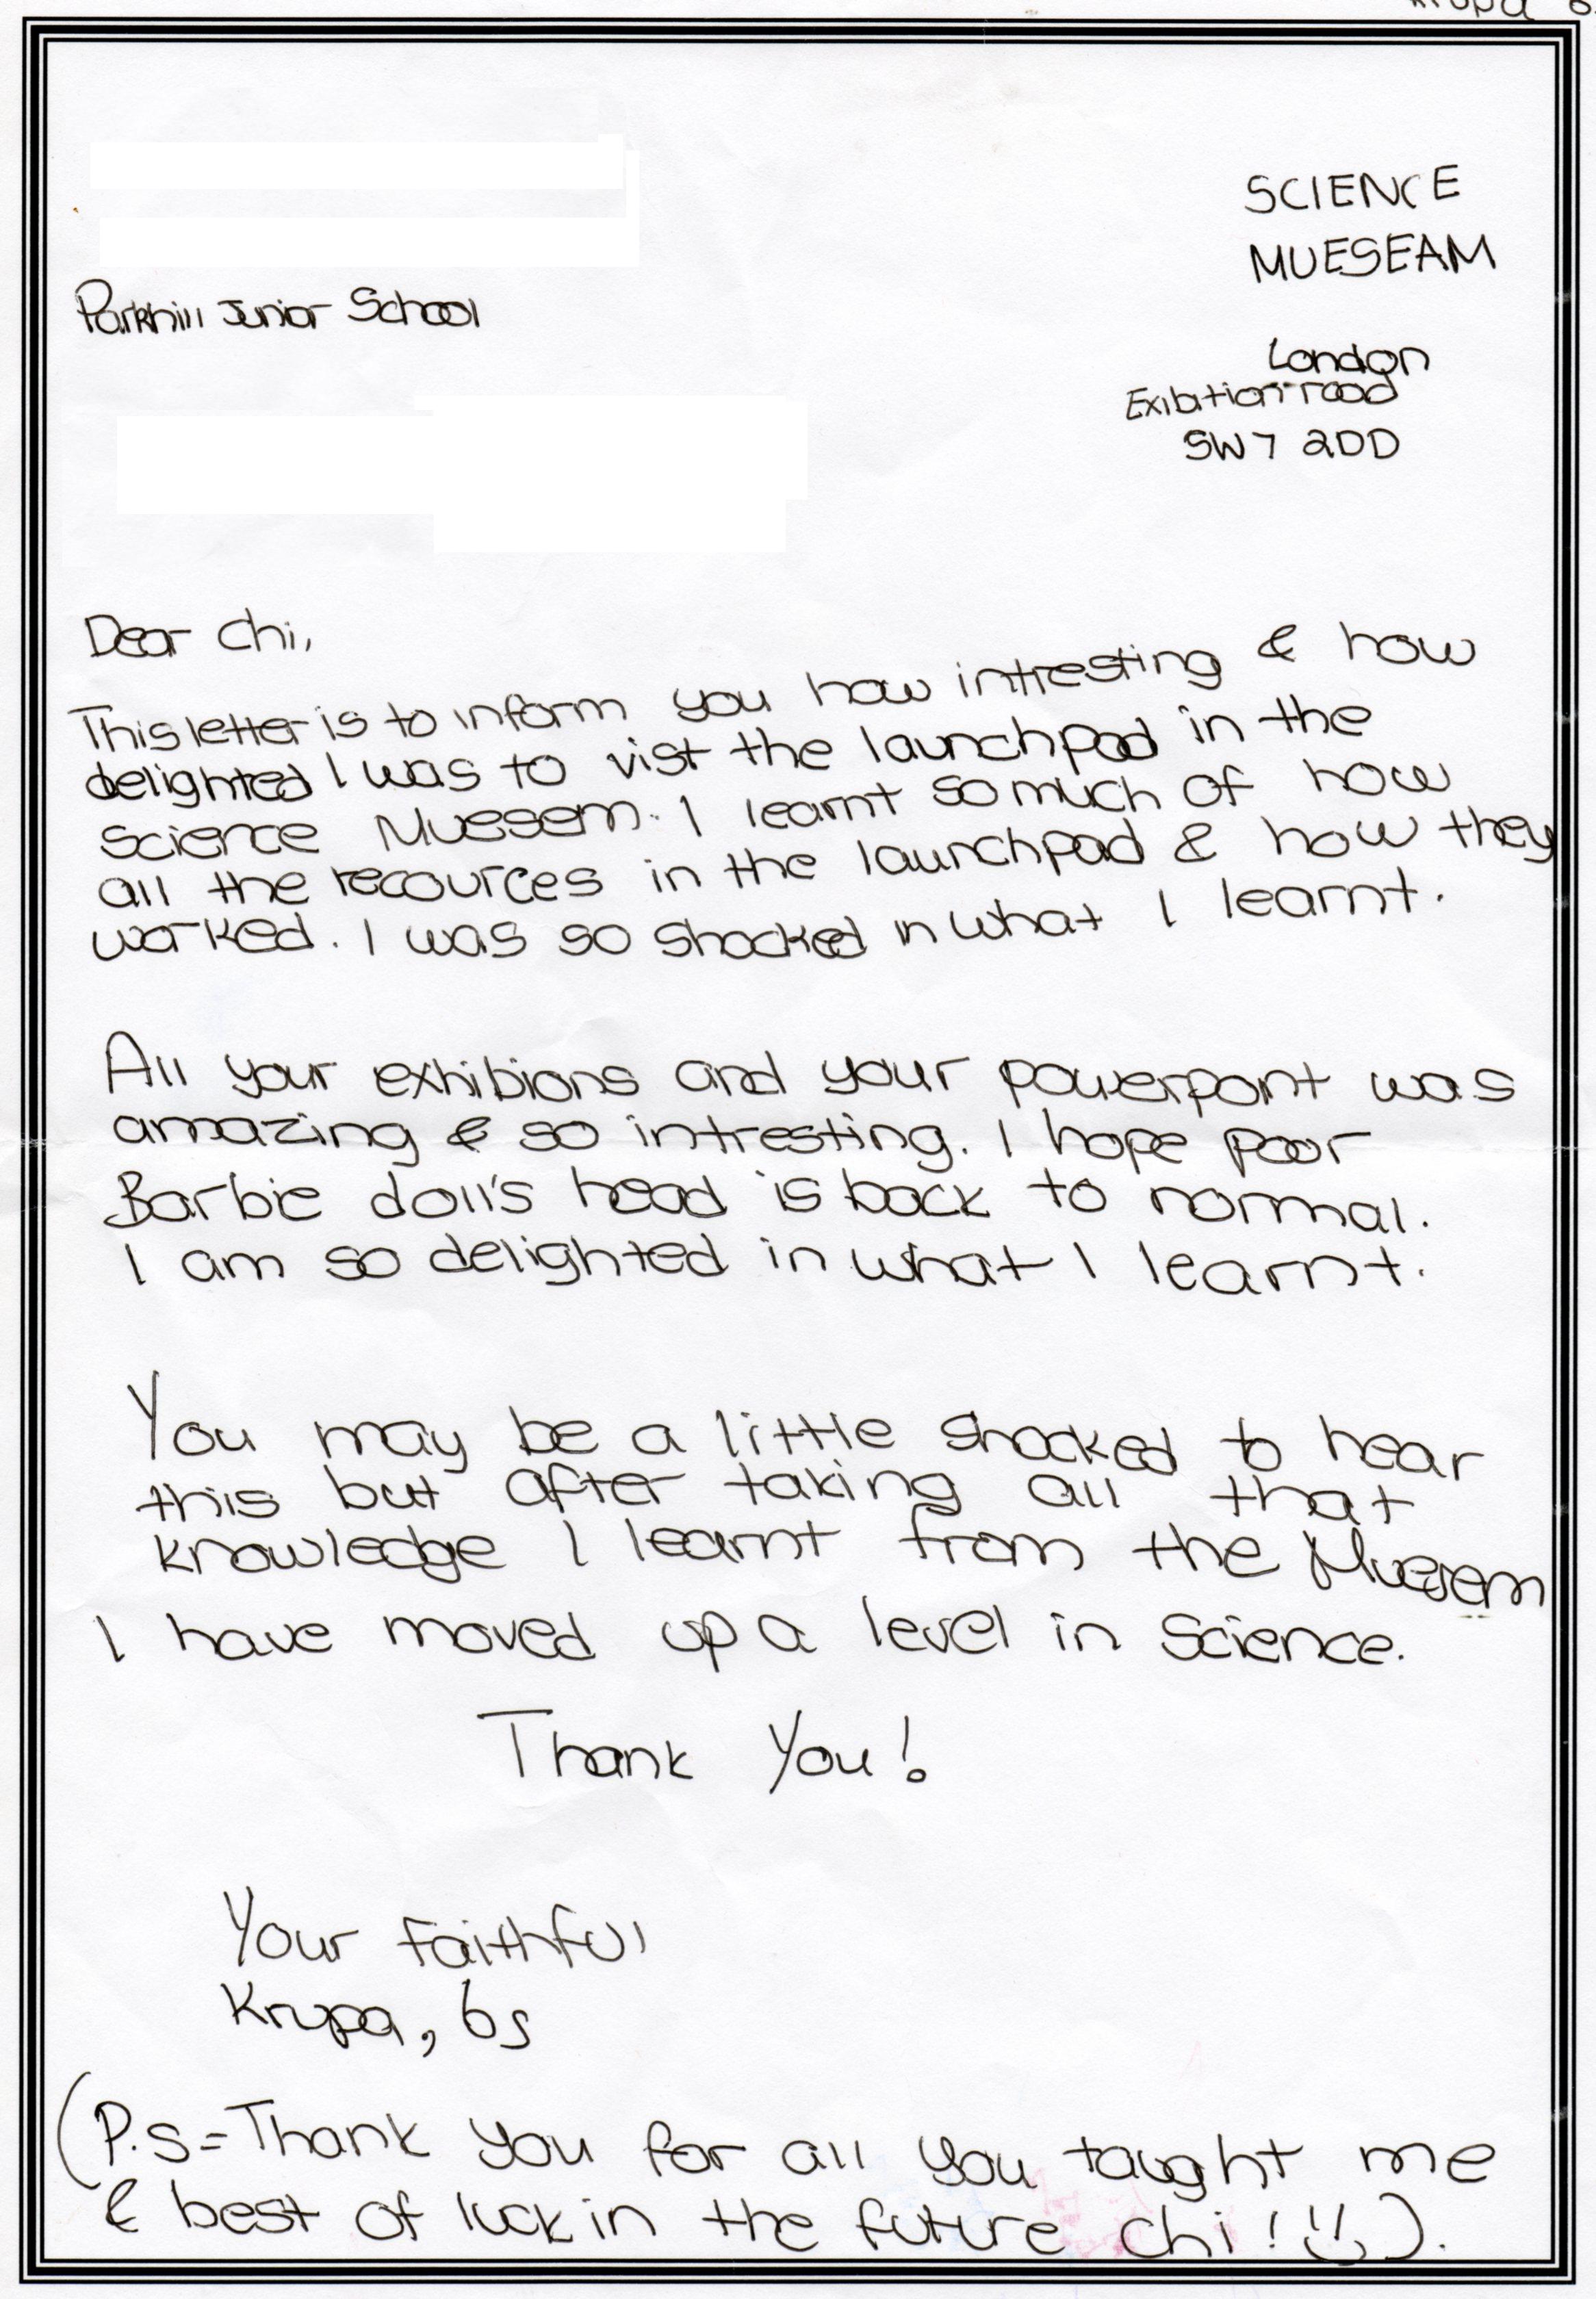 Krupa 6
SCIENCE
MUESEAM
Parkhill Junior School
London
Exibition road
SW7 2DD
Dear Chi,
This letter is to inform you how intresting & how
delighted I was to vist the launchpad in the
science Muesem. I learnt so much of how
all the recources in the launchpad & how they
worked. I was so shocked in what I learnt.
All your exhibions and your powerpoint was
amazing & so intresting. I hope poor
Barbie doll's head is back to normal.
I am so delighted in what I learnt.
You may be a little shocked to hear
this but after taking all that
knowledge I learnt from the Muesem
I have moved up a level in Science.
Thank You!
Your faithful
Krupa, 6s
(P.S=Thank you for all you taught me
& best of luck in the future chi! ).